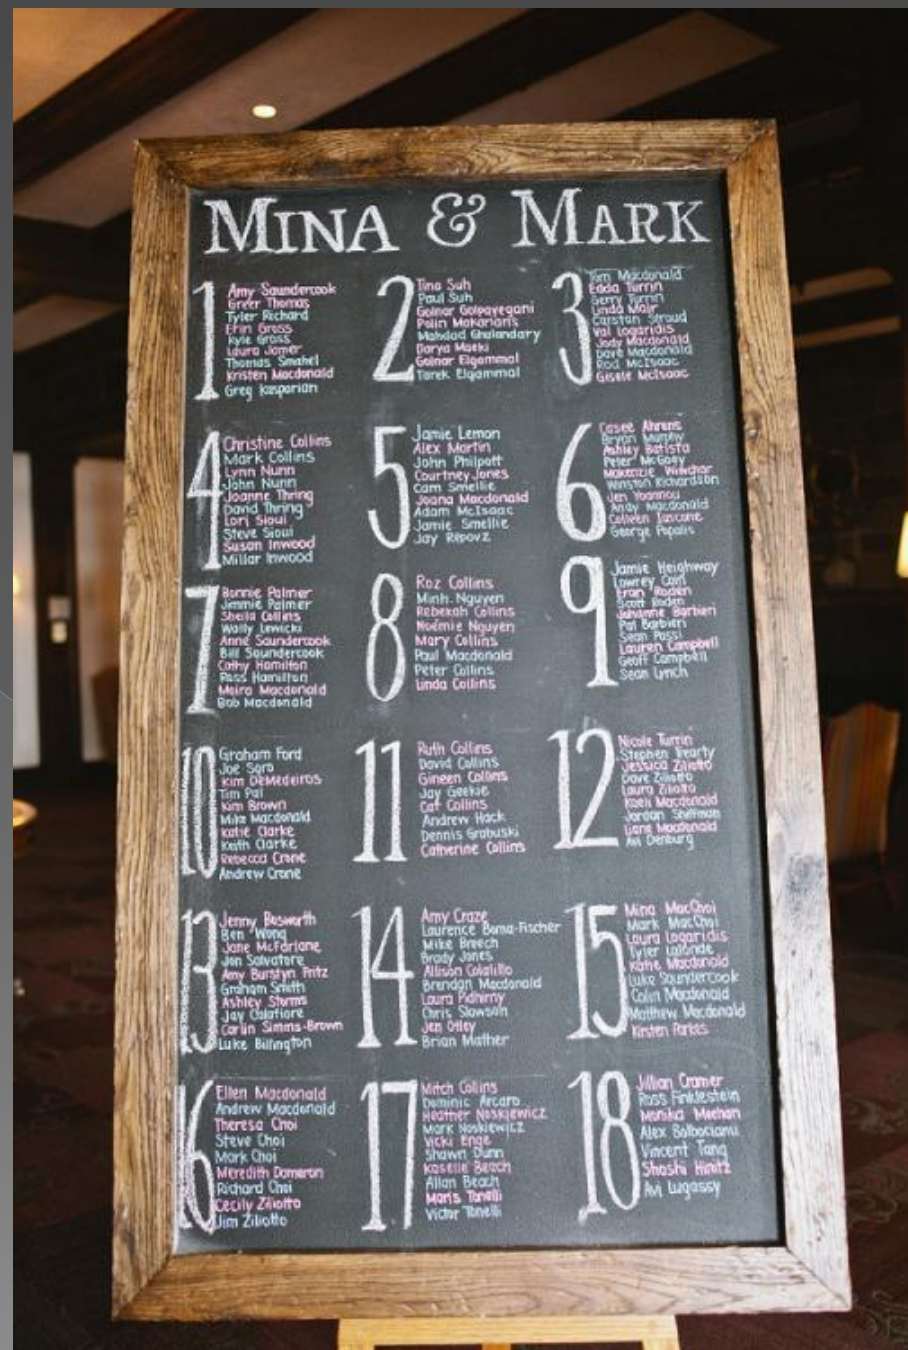 MINA & MARK
1
Amy Saundercook
Greer Thomas
Tyler Richard
Erin Gross
Kyle Gross
Laura Jamer
Thomas Smahel
Kristen Macdonald
Greg Kasparian
2
Tina Suh
Paul Suh
Golnar Golpayegani
Polin Makarians
Mahdad Ghalandary
Darya Maeki
Golnar Elgammal
Tarek Elgammal
3
Tim Macdonald
Edda Turrin
Gerry Turrin
Linda Mair
Carsten Stroud
Val Logaridis
Jody Macdonald
Dave Macdonald
Rod McIsaac
Gisele McIsaac
4
Christine Collins
Mark Collins
Lynn Nunn
John Nunn
Joanne Thring
David Thring
Lori Sioui
Steve Sioui
Susan Inwood
Millar Inwood
5
Jamie Lemon
Alex Martin
John Philpott
Courtney Jones
Cam Smellie
Joana Macdonald
Adam McIsaac
Jamie Smellie
Jay Repovz
6
Casee Ahrens
Bryan Murphy
Ashley Batista
Peter McGoey
Makenzie
Winston Richardson
Jen Yoannou
Andy Macdonald
Colleen Tuscone
George Popalis
7
Bonnie Palmer
Jimmie Palmer
Sheila Collins
Wally Lewicki
Anne Saundercook
Bill Saundercook
Cathy Hamilton
Ross Hamilton
Moira Macdonald
Bob Macdonald
8
Roz Collins
Minh Nguyen
Rebekah Collins
Noémie Nguyen
Mary Collins
Paul Macdonald
Peter Collins
Linda Collins
9
Jamie Heighway
Lowrey Cant
Fran Roden
Scott Roden
Johanne Barbieri
Pat Barbieri
Sean Passi
Lauren Campbell
Geoff Campbell
Sean Lynch
10
Graham Ford
Joe Saro
Kim DeMedeiros
Tim Pal
Kim Brown
Mike Macdonald
Katie Clarke
Keith Clarke
Rebecca Crone
Andrew Crone
11
Ruth Collins
David Collins
Gineen Collins
Jay Geekie
Cat Collins
Andrew Hack
Dennis Grabuski
Catherine Collins
12
Nicole Turrin
Stephen Trearty
Jessica Ziliotto
Dave Ziliotto
Laura Ziliotto
Kaeli Macdonald
Jordan Shiffman
Liane Macdonald
Avi Denburg
13
Jenny Bosworth
Ben Wong
Jane McFarlane
Jon Salvatore
Amy Burstyn Fritz
Graham Smith
Ashley Storms
Jay Calafiore
Carlin Simms-Brown
Luke Billington
14
Amy Craze
Laurence Boma-Fischer
Mike Breech
Brady Jones
Allison Colalillo
Brendan Macdonald
Laura Pidhirny
Chris Slawson
Jen Otley
Brian Mather
15
Mina MacChoi
Mark MacChoi
Laura Logaridis
Tyler Lalonde
Katie Macdonald
Luke Saundercook
Colin Macdonald
Matthew Macdonald
Kirsten Parkes
16
Ellen Macdonald
Andrew Macdonald
Theresa Choi
Steve Choi
Mark Choi
Meredith Dameron
Richard Choi
Cecily Ziliotto
Jim Ziliotto
17
Mitch Collins
Dominic Arcaro
Heather Noskiewicz
Mark Noskiewicz
Vicki Enge
Shawn Dunn
Kaselle Beach
Allan Beach
Maris Tonelli
Victor Tonelli
18
Jillian Cramer
Ross Finklestein
Monika Meehan
Alex Bolbocianu
Vincent Tang
Shoshi Hirntz
Avi Lugassy